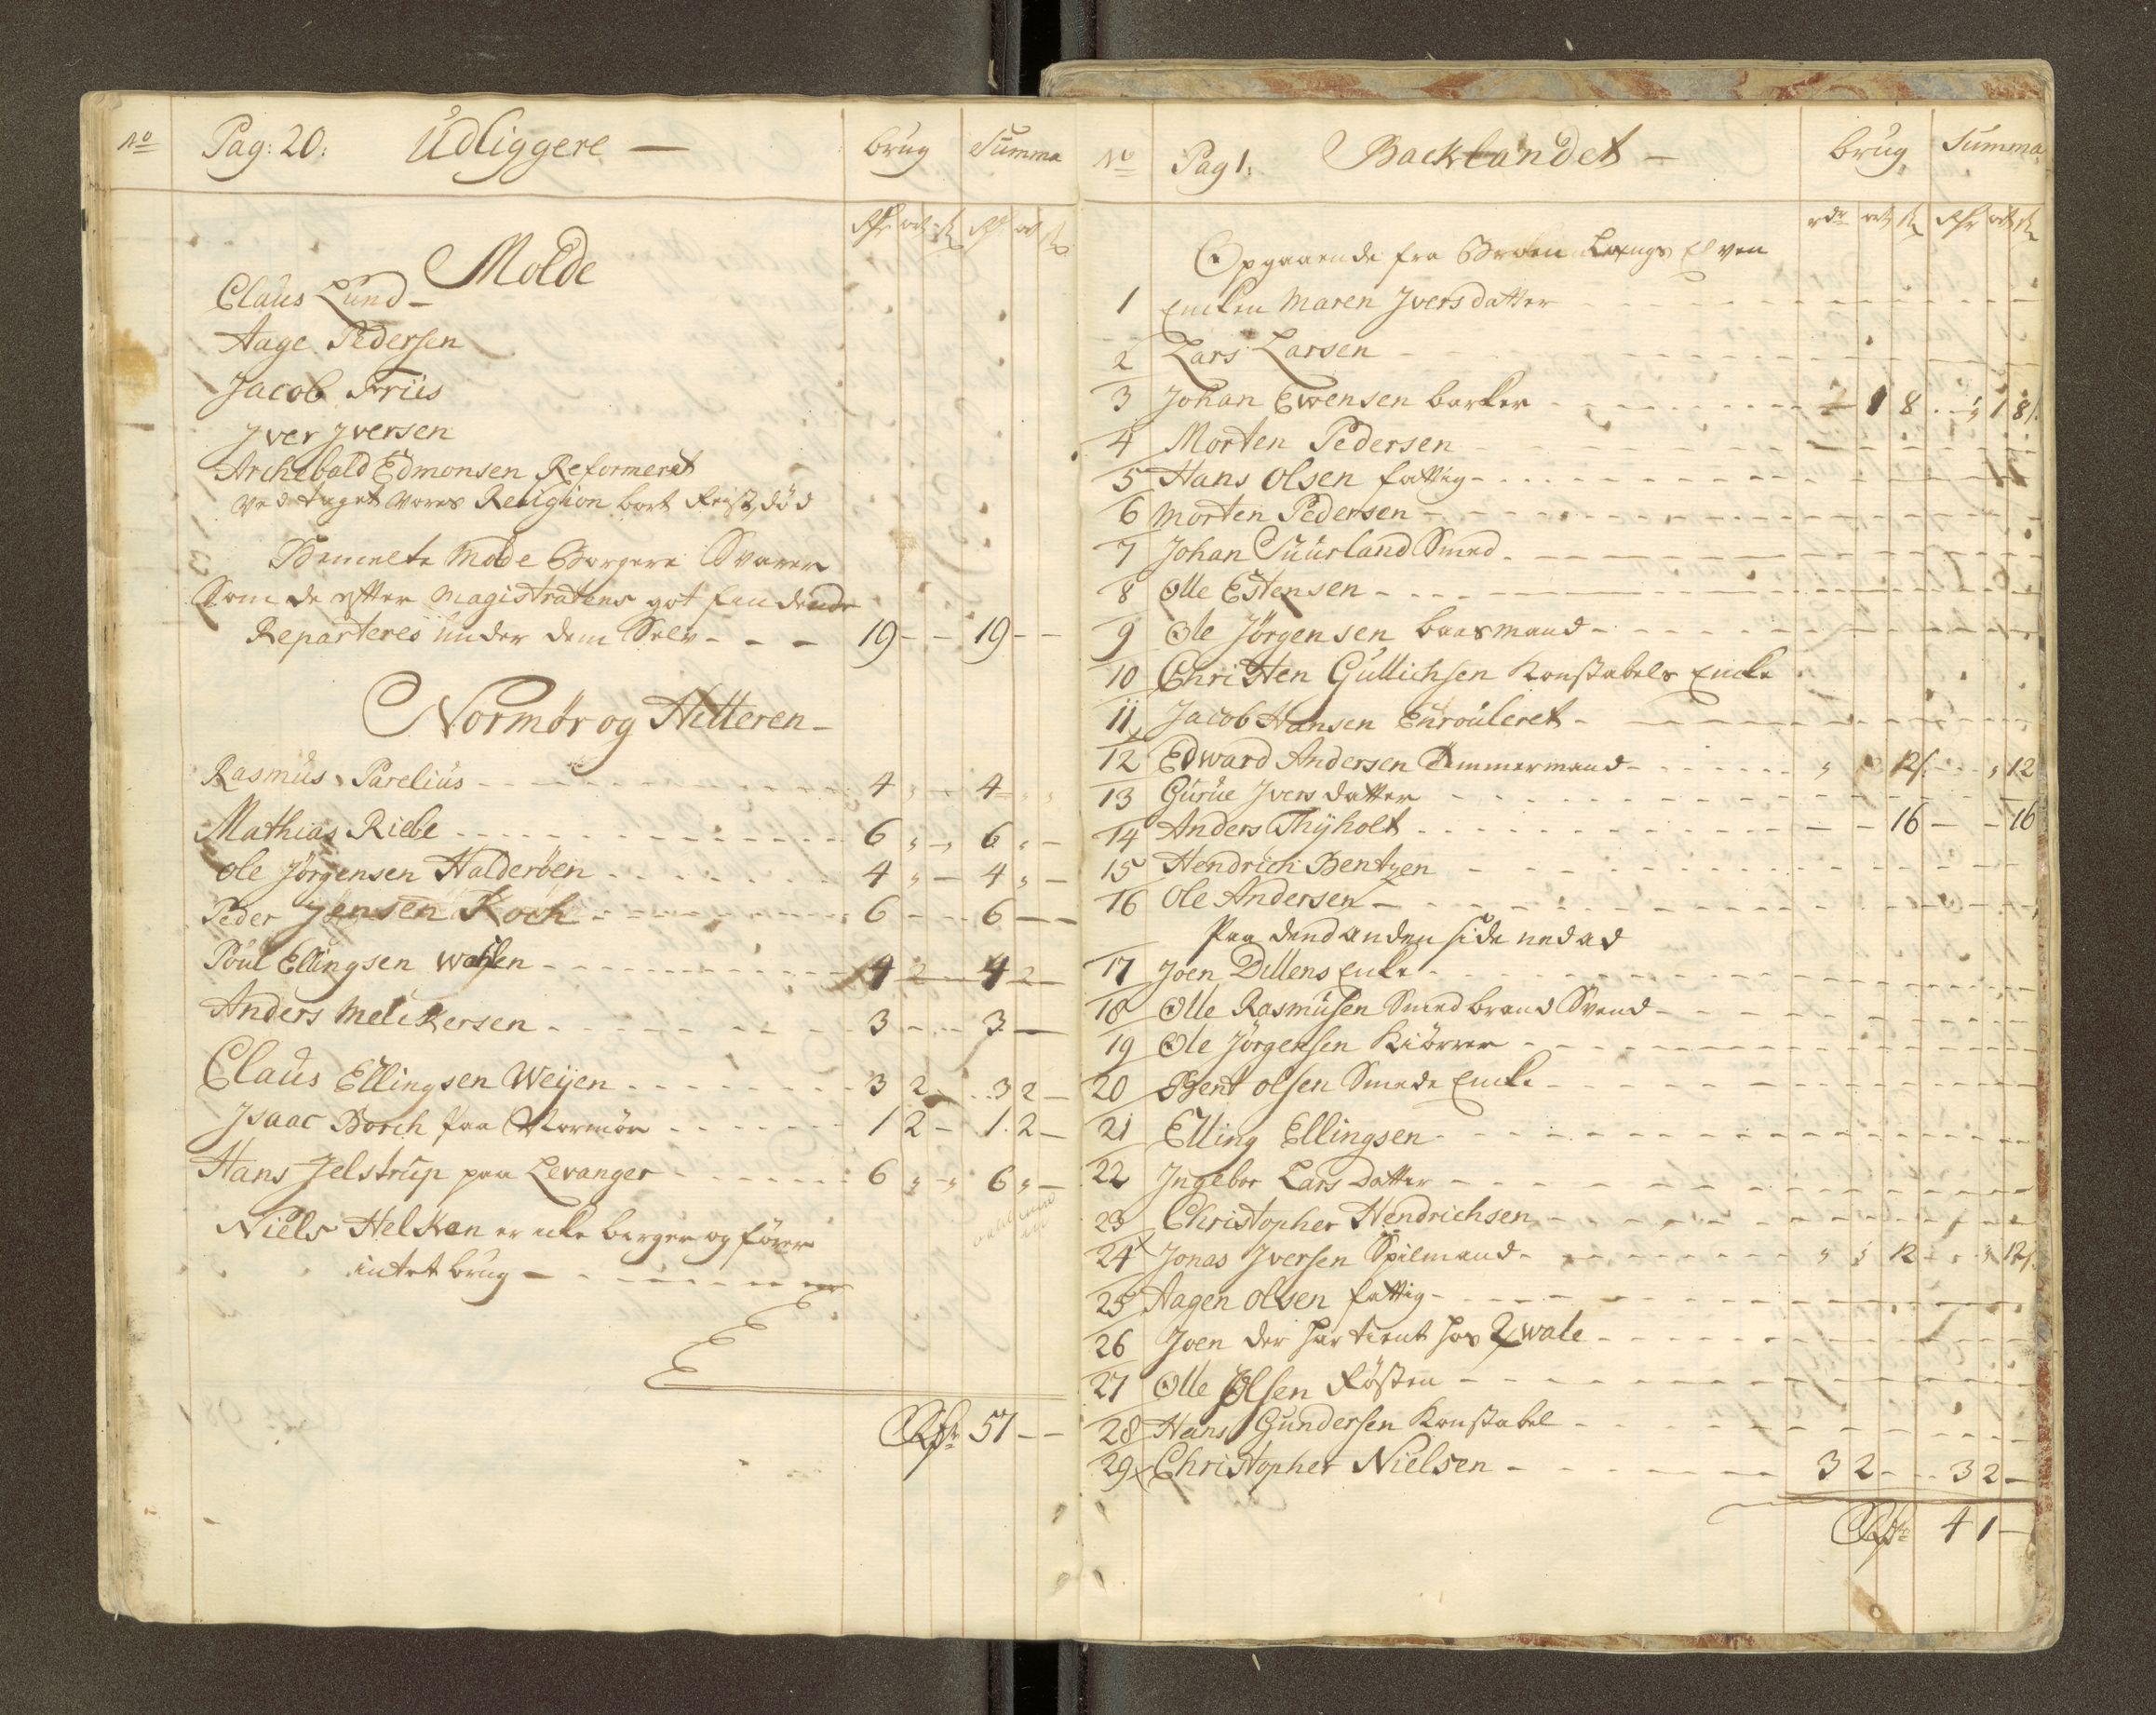 No Pag: 20: Udliggere — brug Summa
Rdr ort s Rdr ort s
Molde
Claus Lund —
Aage Pedersen
Jacob Friis
Jver Jversen
Archebald Edmonsen Reformeret
Vedtaget vores Religion bort Reist, död
Bemelte Molde Borgere Svarer
Som de efter Magistratens got findende
Reparteres under dem Selv - - - 19 - - 19 - -
Normör og Hitteren —
Rasmus Parelius - - - 4 „ - 4 „ „
Mathias Riebe - - - 6 „ - 6 „ -
Ole Jörgensen Halderöen - - - 4 „ - 4 „ -
Peder Jensen Koch - - - 6 - - 6 - -
Poul Ellingsen - - - 4 2 - 4 2 -
Anders Melckersen - - - 3 - - 3 -
Claus Ellingsen Weijen - - - 3 2 - 3 2 -
Jsaac Borch paa Normör - - - 1 2 - 1 2 -
Hans Jelstrup paa Levanger - - - 6 „ - „ 6 „ -
Niels Helkan er icke borger og förer
intet brug - - -
Rdr 57 - -
No Pag 1: Backlandet — brug Summa
rdr ort s Rdr ort s
Opgaaende fra Broen Langs Elven
1 Encken Maren Jversdatter - - -
2 Lars Larsen - - -
3 Johan Ewensen barker - - - 1 8 - „ 1 8
4 Morten Pedersen - - -
5 Hans Olsen fattig - - -
6 Morten Pedersen - - -
7 Johan Suurland Smed - - -
8 Olle Estensen - - -
9 Ole Jörgensen baasmand - - -
10 Christen Gullichsen Konstabels Encke
11 Jacob Hansen Enrouleret - - -
12 Edward Andersen Tömmermand - - - „ 12 - - „ 12
13 Gurue Jvers datter - - -
14 Anders Thyholt - - - 16 - - 16
15 Hendrich Bentzen - - -
16 Ole Andersen - - -
Paa dend anden side ned ad
17 Joen Dillens Encke - - -
18 Olle Rasmusen Smed brand Svend - - -
19 Ole Jörgensen Kiörer - - -
20 Bent Olsen Smeds Encke - - -
21 Elling Ellingsen - - -
22 Jngebor Lars datter - - -
23 Christopher Hendrichsen - - -
24 Jonas Jversen Spilmand - - - „ „ 12 - „ „ 12
25 Hagen Olsen fattig - - -
26 Joen der har tient hos Qwale - - -
27 Olle Olsen Rösten - - -
28 Hans Gundersen Konstabel - - -
29 Christopher Nielsen - - - 3 2 - 3 2 -
Rdr 4 1 -